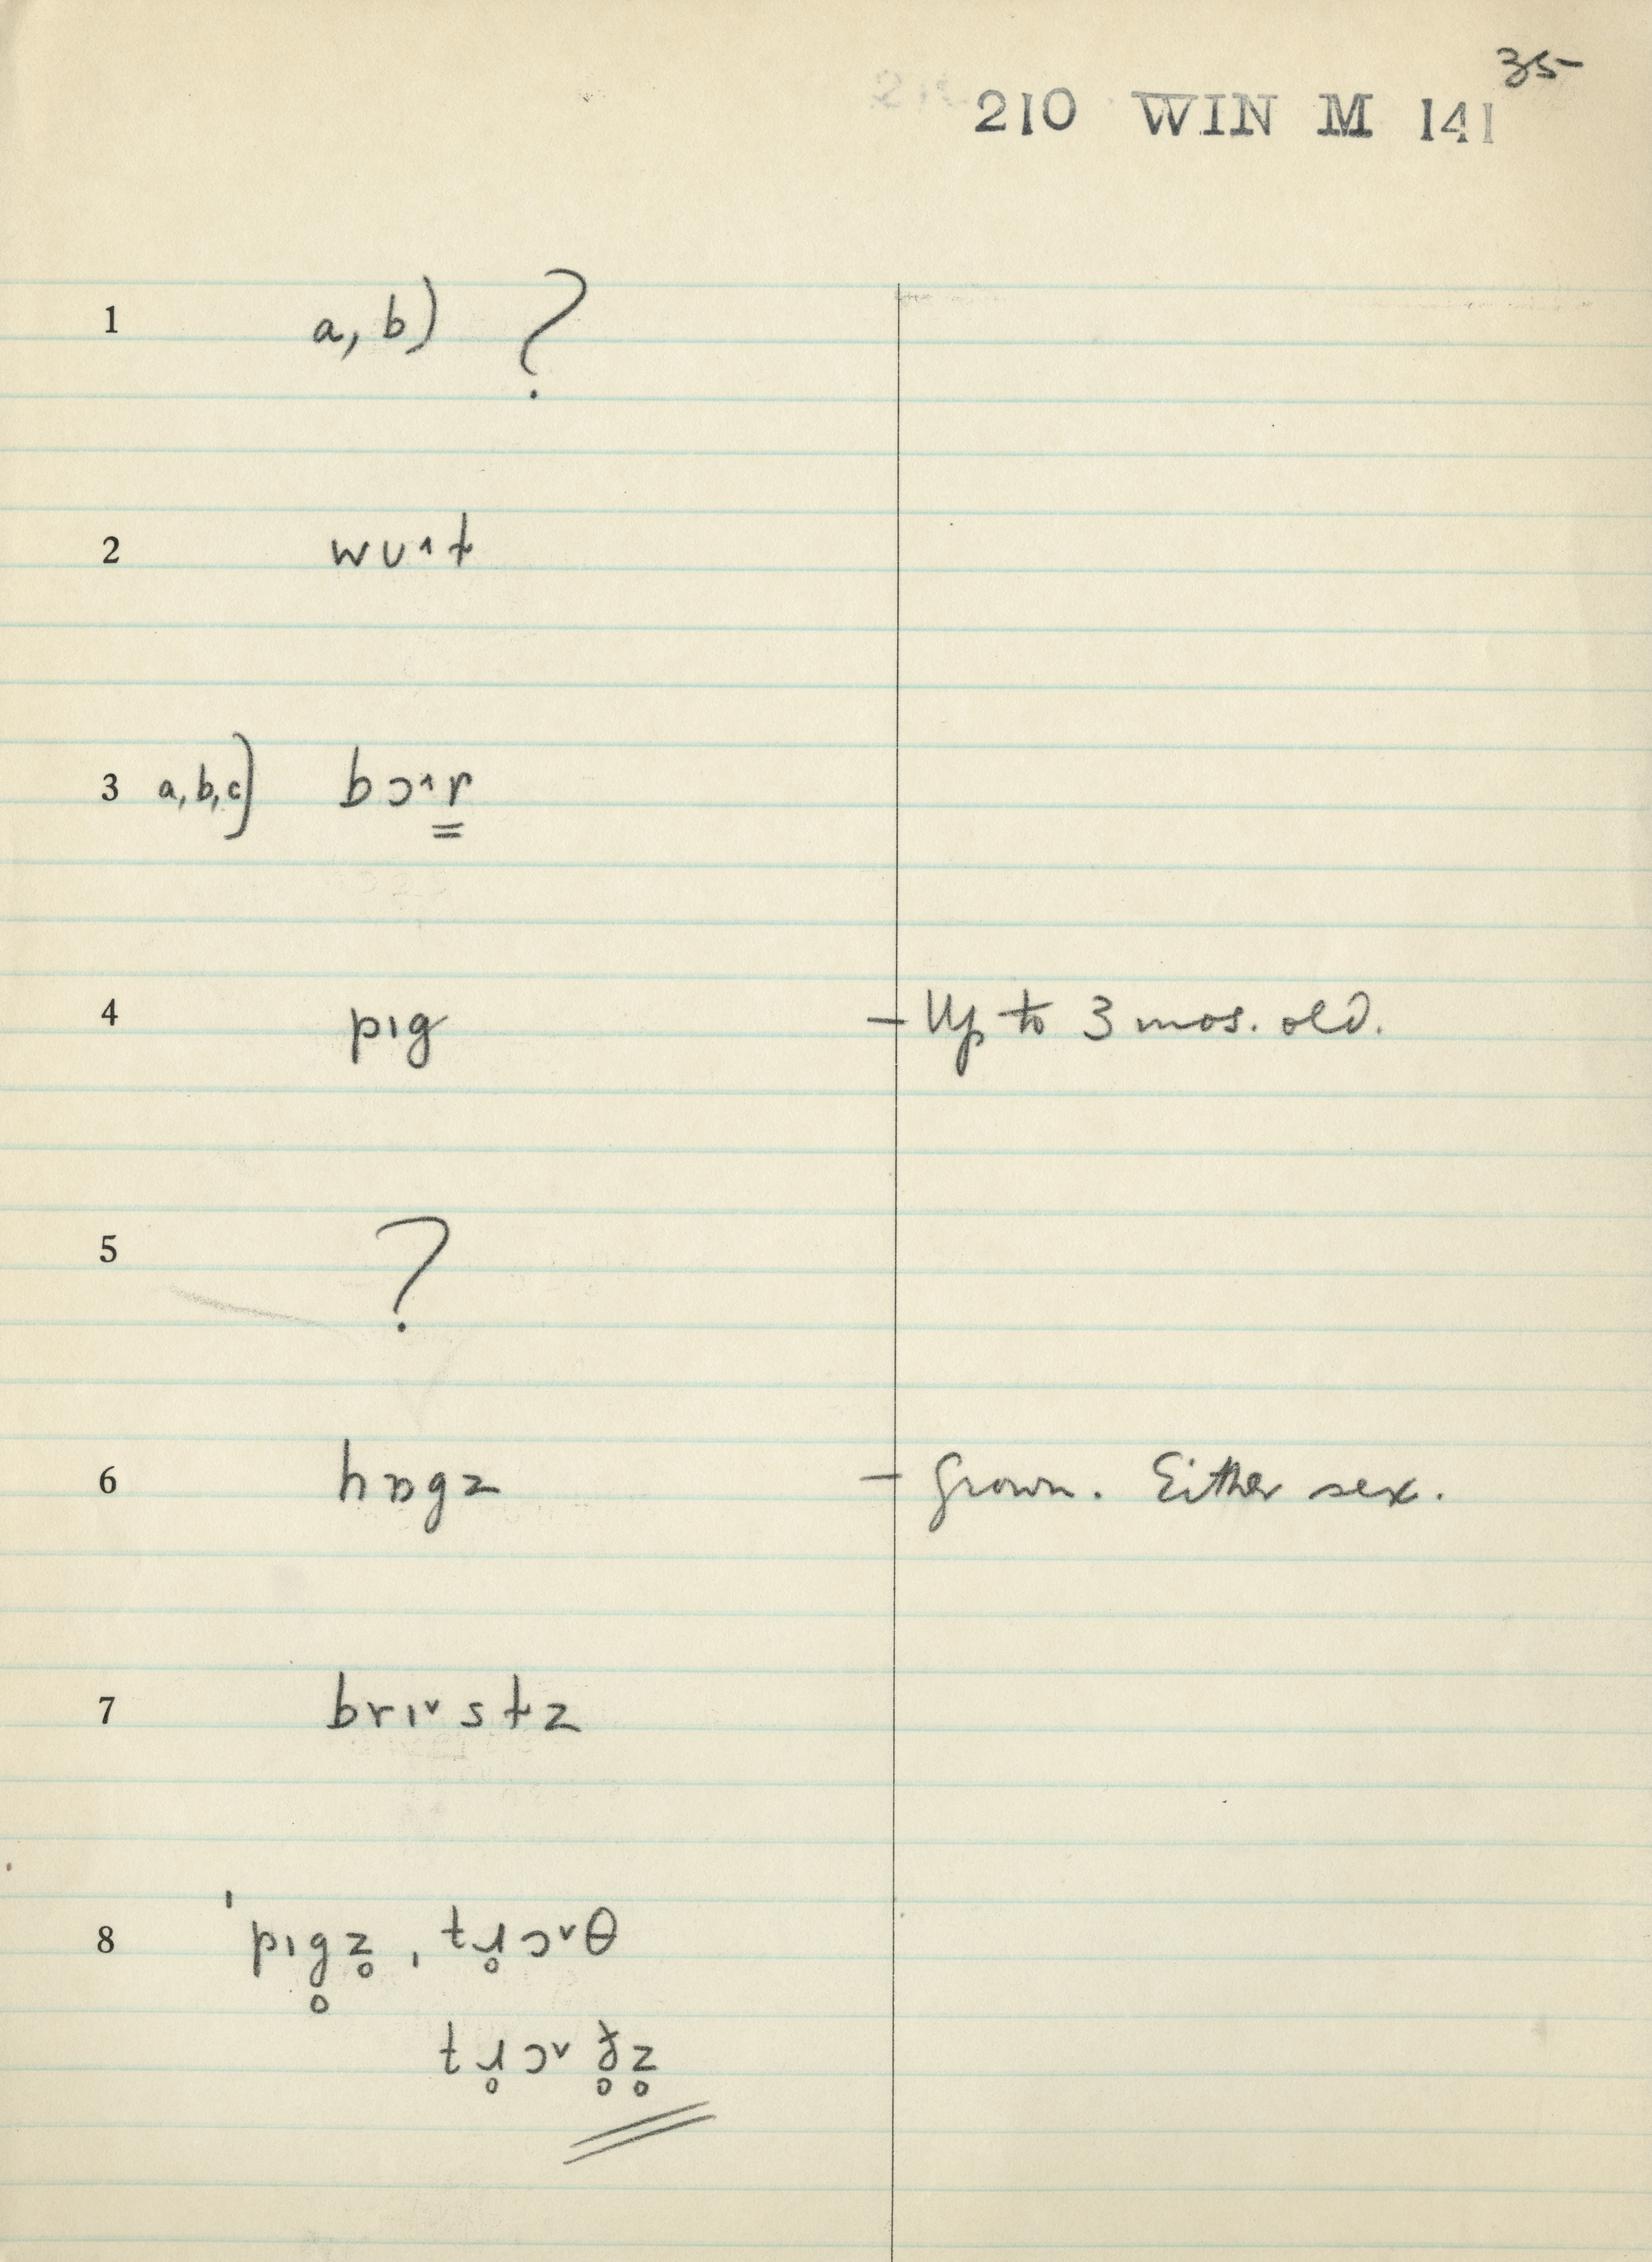 35
210 WIN M 141
1 a, b) ?
2 wʊ˄t
3 a, b, c) bɔ˄r̳
4 pɪg – Up to 3 mos. old.
5 ?
6 hɒgz – Grown. Either sex.
7 brɪ˅stz
8 ˈpɪg̥z̥, tɹ̥ɔ˅θ
tɹ̥ɔ˅ð̥z̥